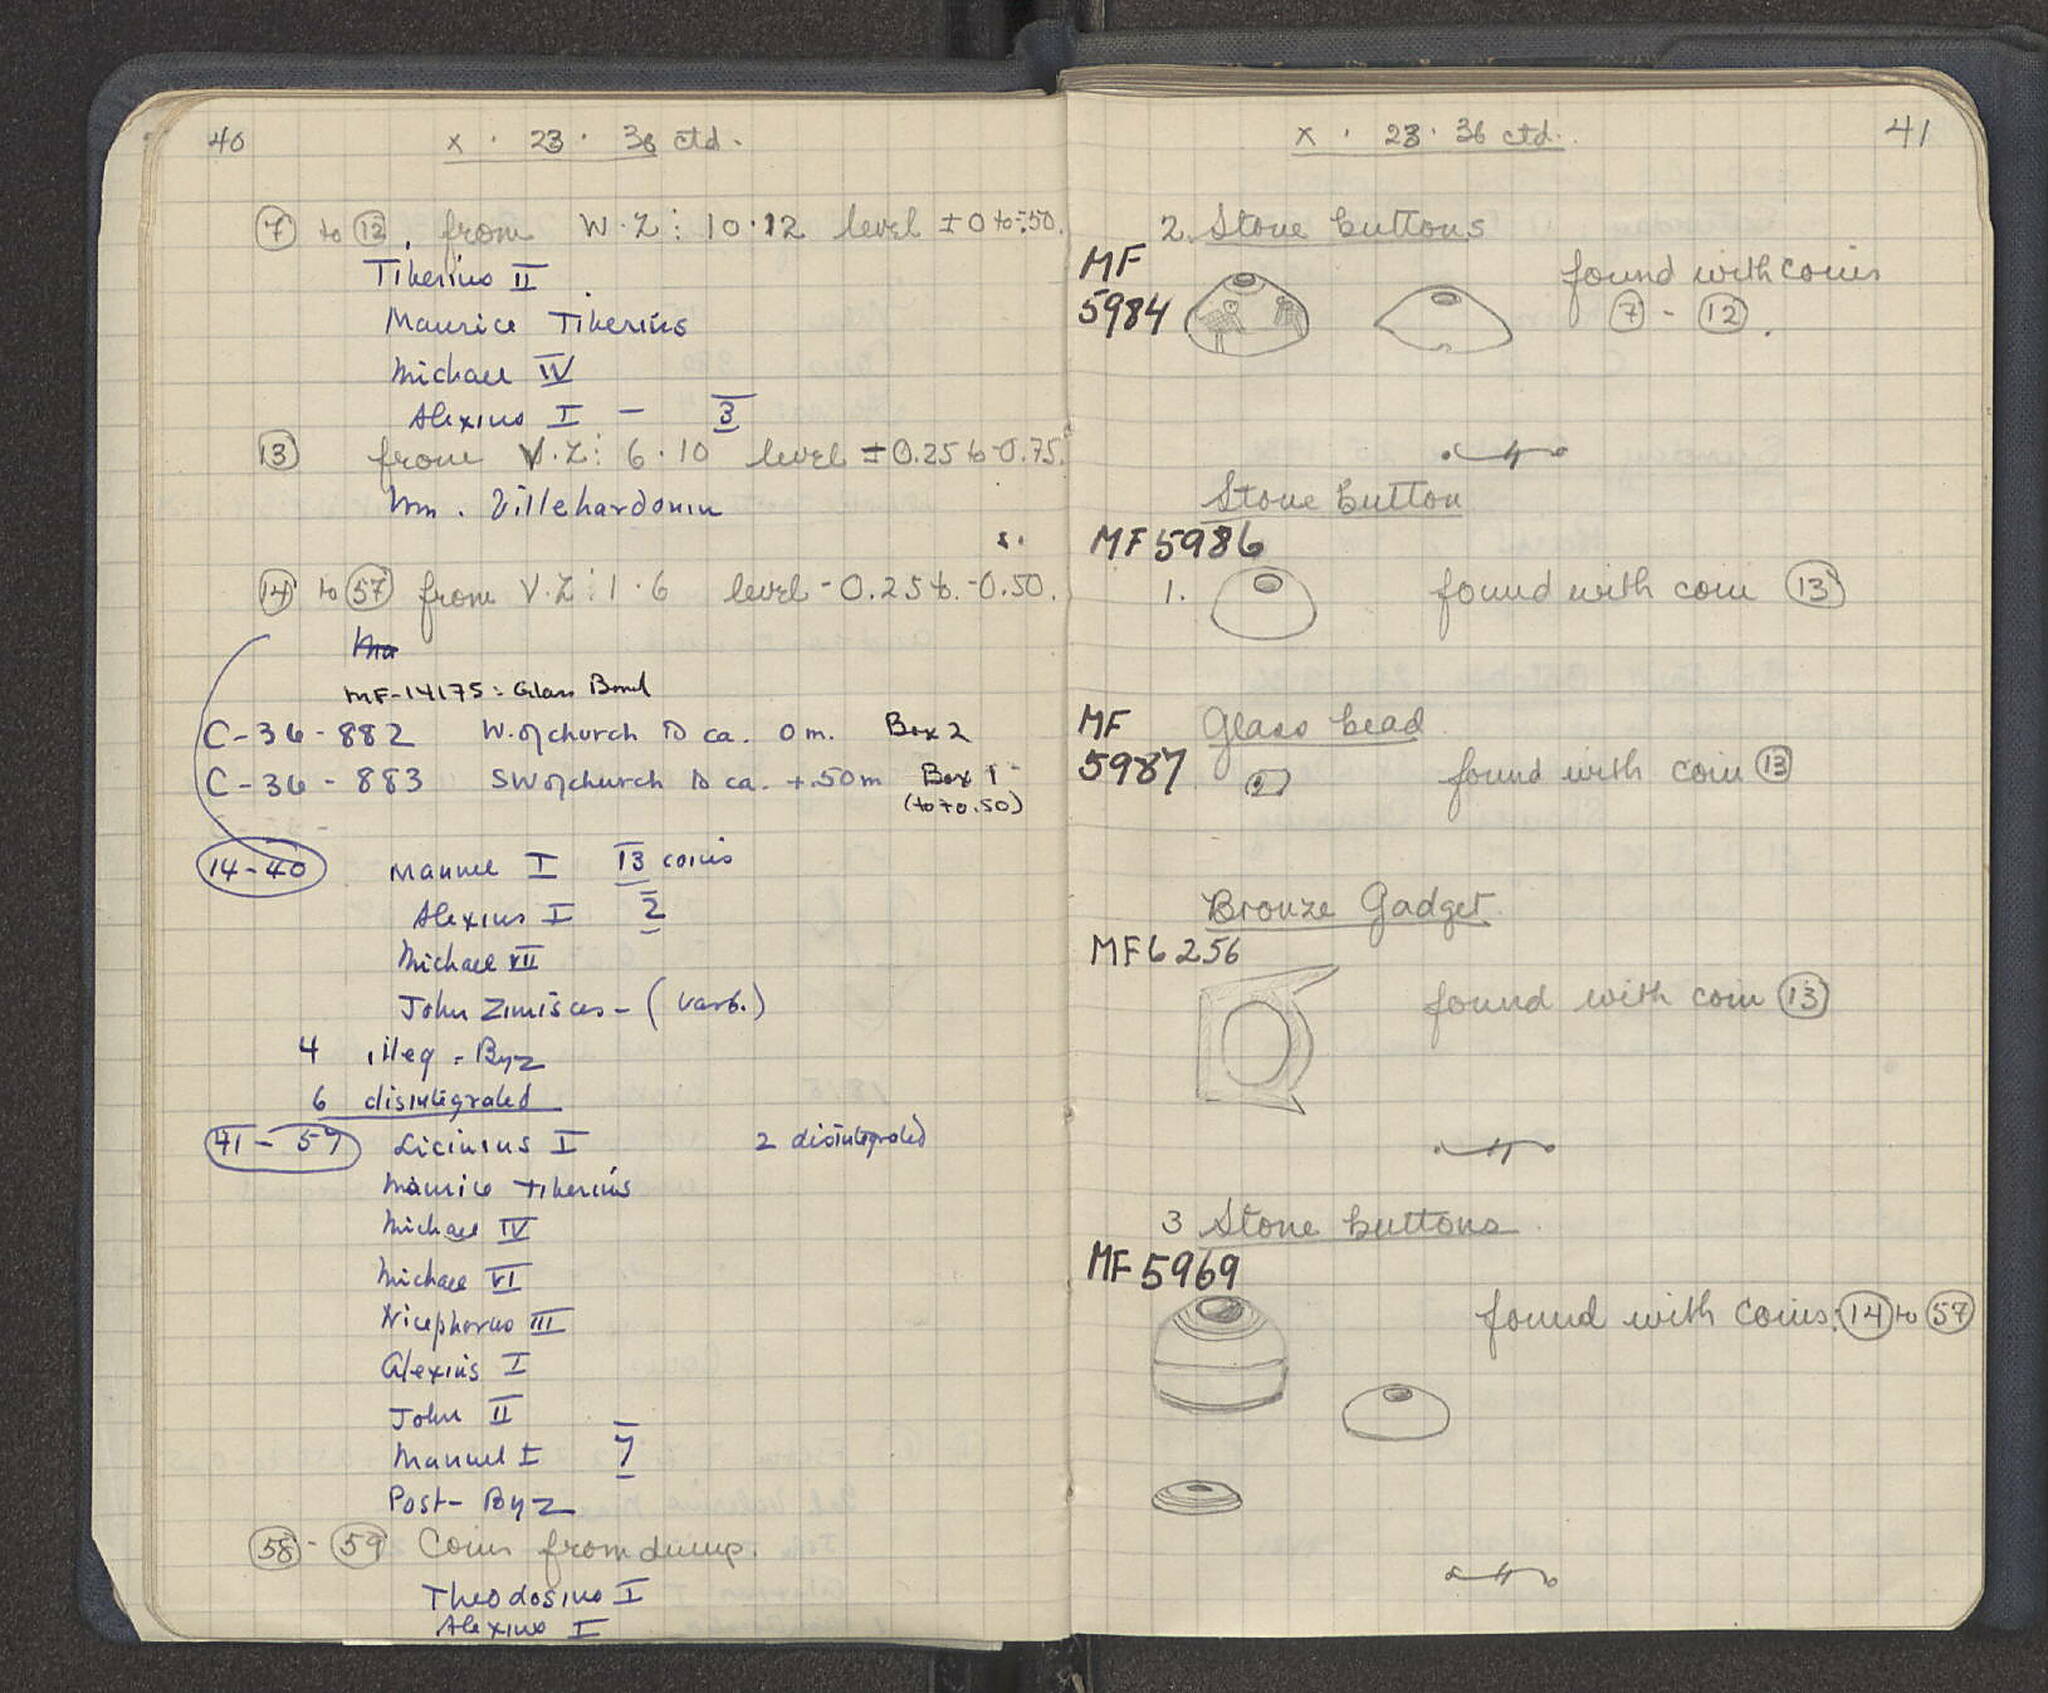 40
x . 23 . 36 ctd.
7 to 12. from W.Z: 10.12 level ±0 to -.50.
Tiberius II
Maurice Tiberius
Michael IV
Alexius I – 3
13 from V.Z: 6.10 level ±0.25 to -0.75.
Wm. Villehardouin
14 to 57 from V.Z: 1.6 level -0.25 to -0.50.
MF-14175: Glass Bowl
C-36-882 W. of church to ca. 0 m. Box 2
C-36-883 SW of church to ca. +.50 m Box 1
(to +0.50)
14-40 Manuel I 13 coins
Alexius I 2
Michael VII
John Zimisces - (barb.)
4 illeg - Byz
6 disintegrated
41 - 57 Licinius I 2 disintegrated
Maurice Tiberius
Michael IV
Michael VI
Nicephorus III
Alexius I
John II
Manuel I 7
Post-Byz
58 - 59 Coins from dump.
Theodosius I
Alexius I
x . 23 . 36 ctd.
41
2 Stone buttons
MF
5984
found with coins
7 - 12.
Stone button
MF 5986
1. found with coin 13
MF Glass bead
5987 found with coin 13
Bronze Gadget
MF 6256
found with coin 13
3 Stone buttons
MF 5969
found with coins: 14 to 57